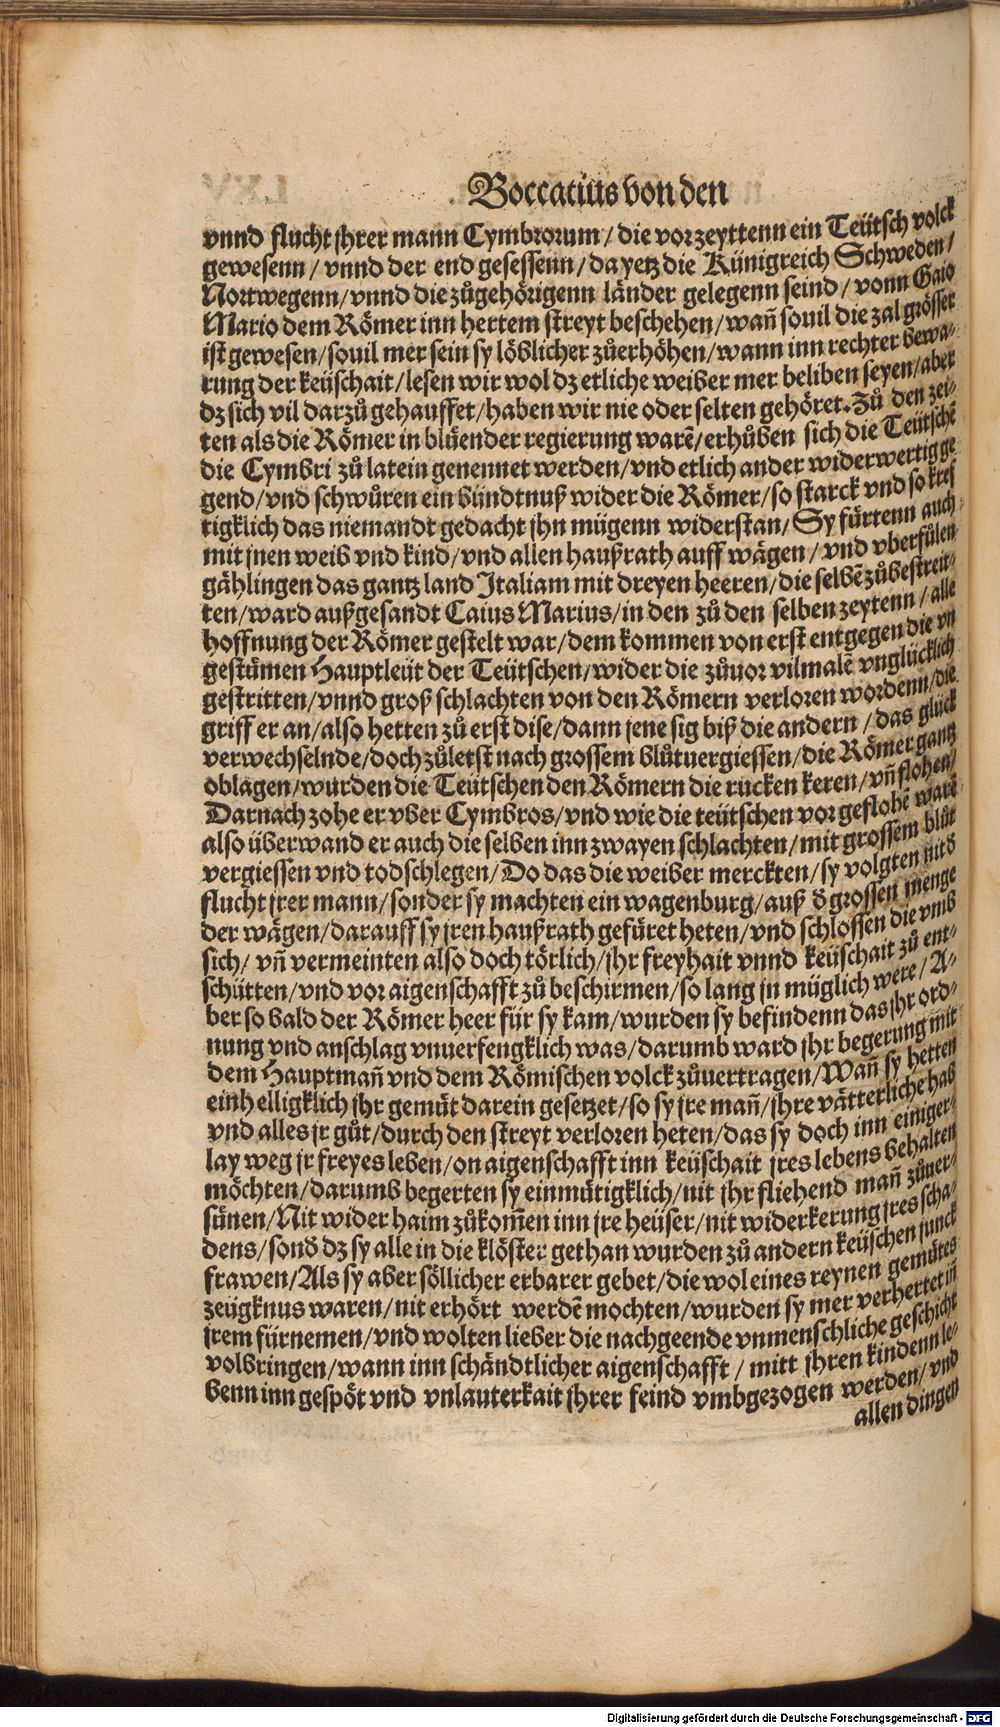 Boccatius von den
vnnd flucht jhrer mann Cymbrorum / die vorzeyttenn ein Teütsch volck
gewesenn / vnnd der end gesessenn / da yetz die Künigreich Schweden /
Nortwegenn / vnnd die zůgehörigenn länder gelegenn seind / vonn Gaio
Mario dem Römer inn hertem streyt beschehen / wañ souil die zal grösser
ist gewesen / souil mer sein sy löblicher zůerhöhen / wann inn rechter bewa-
rung der keüschait / lesen wir wol dz etliche weiber mer beliben seyen / aber
dz sich vil darzů gehauffet / haben wir nie oder selten gehöret. Zů den zei-
ten als die Römer in blüender regierung warē / erhůben sich die Teütschē
die Cymbri zů latein genennet werden / vnd etlich ander widerwertig ge
gend / vnd schwůren ein bündtnuß wider die Römer / so starck vnd so kref
tigklich das niemandt gedacht jhn mügenn widerstan / Sy fürtenn auch
mit jnen weib vnd kind / vnd allen haußrath auff wägen / vnd vberfülen
gählingen das gantz land Italiam mit dreyen heeren / die selbē zůbestreit-
ten / ward außgesandt Caius Marius / in den zů den selben zeytenn / alle
hoffnung der Römer gestelt war / dem kommen von erst entgegen die vn
gestümen Hauptleüt der Teütschen / wider die zůuor vilmalē vnglücklich
gestritten / vnnd groß schlachten von den Römern verloren wordenn / die
griff er an / also hetten zů erst dise / dann jene sig biß die andern / das glück
verwechselnde / doch zůletst nach grossem blůtuergiessen / die Römer gantz
oblagen / wurden die Teütschen den Römern die rucken keren / vñ flohen /
Darnach zohe er vber Cymbros / vnd wie die teütschen vor geflohē warē
also überwand er auch die selben inn zwayen schlachten / mit grossem blůt
vergiessen vnd todschlegen / Do das die weiber merckten / sy volgten nit d̄
flucht jrer mann / sonder sy machten ein wagenburg / auß d̄ grossen menge
der wägen / darauff sy jren haußrath gefüret heten / vnd schlossen die vmb
sich / vñ vermeinten also doch törlich / jhr freyhait vnnd keüschait zů ent-
schütten / vnd vor aigenschafft zů beschirmen / so lang jn müglich were / A-
ber so bald der Römer heer für sy kam / wurden sy befindenn das jhr ord-
nung vnd anschlag vnuerfengklich was / darumb ward jhr begerung mit
dem Hauptmañ vnd dem Römischen volck zůuertragen / Wañ sy hetten
einhelligklich jhr gemüt darein gesetzet / so sy jre mañ / jhre vätterliche hab
vnd alles jr gůt / durch den streyt verloren heten / das sy doch inn einiger-
lay weg jr freyes leben / on aigenschafft inn keüschait jres lebens behalten
möchten / darumb begerten sy einmütigklich / nit jhr fliehend mañ zůuer-
sünen / Nit wider haim zůkom̄en inn jre heüser / nit widerkerung jres scha-
dens / sond̄ dz sy alle in die klöster gethan wurden zů andern keüschen junck
frawen / Als sy aber söllicher erbarer gebet / die wol eines reynen gemütes
zeügknus waren / nit erhört werdē mochten / wurden sy mer verhertet iñ
jrem fürnemen / vnd wolten lieber die nachgeende vnmenschliche geschicht
volbringen / wann inn schändtlicher aigenschafft / mitt jhren kindenn le-
benn inn gespöt vnd vnlauterkait jhrer feind vmbgezogen werden / vnd
allen dingen
Digitalisierung gefördert durch die Deutsche Forschungsgemeinschaft - DFG